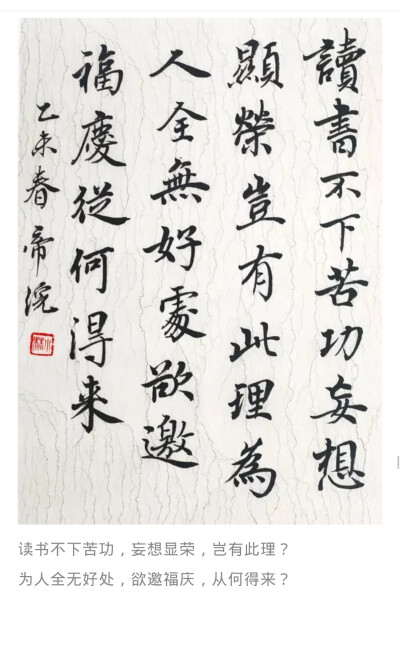 讀書不下苦功妄想
顯榮豈有此理為
人全無好處欲邀
福慶從何得来
乙未春帝浣
读书不下苦功，妄想显荣，岂有此理？
为人全无好处，欲邀福庆，从何得来？